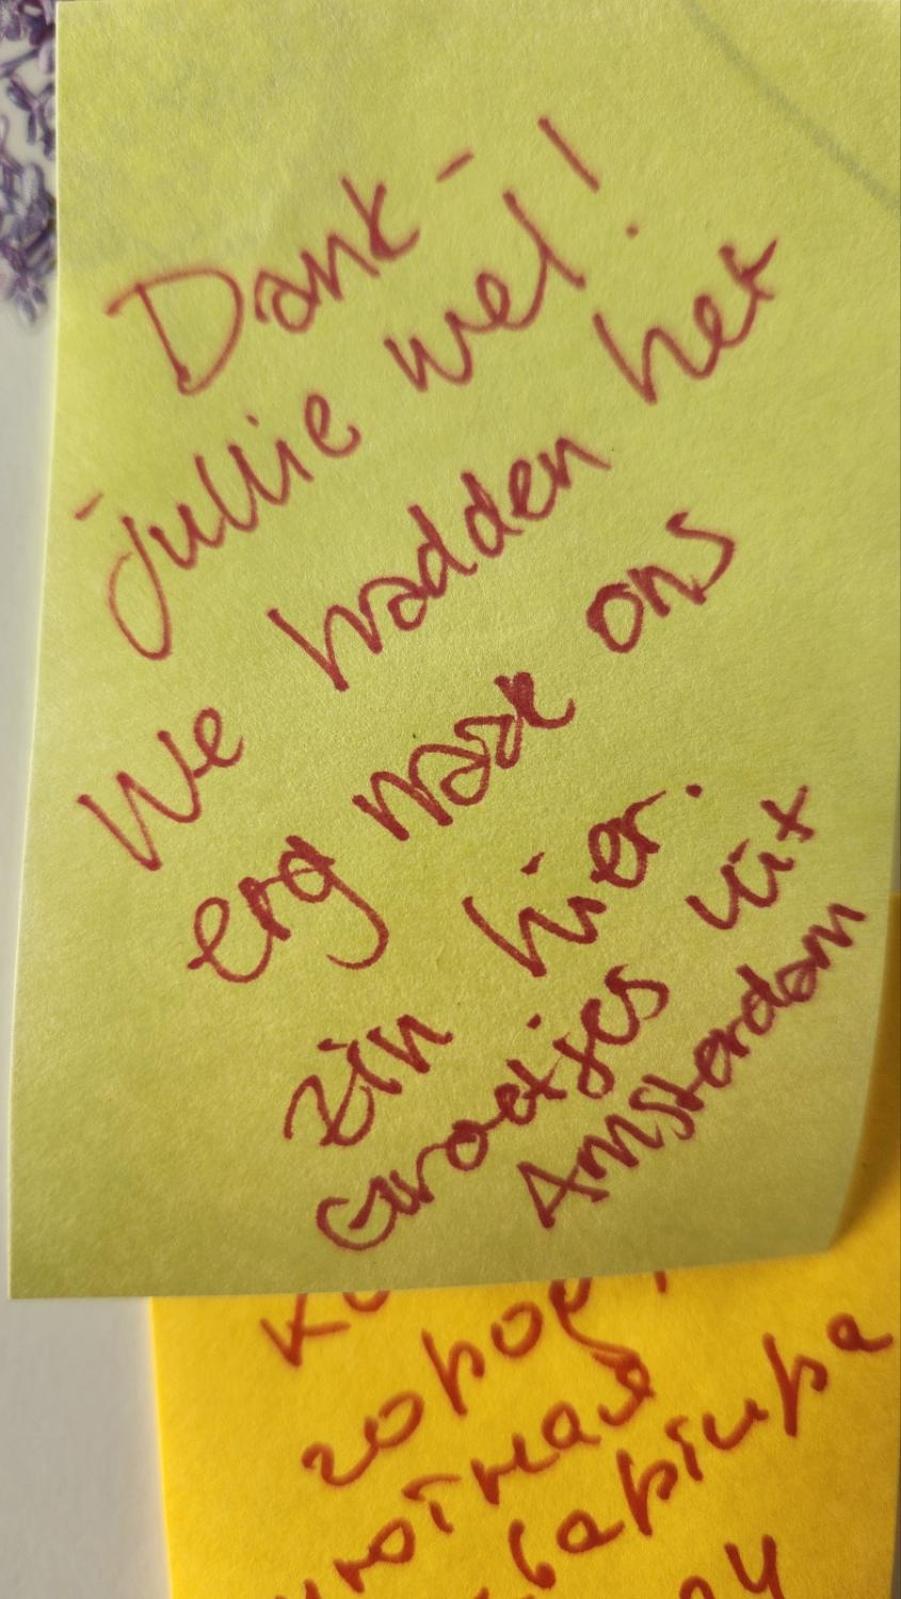 Dank-
jullie wel!
We hadden het
erg naar ons
zin hier.
Groetjes uit
Amsterdam
город
уютная